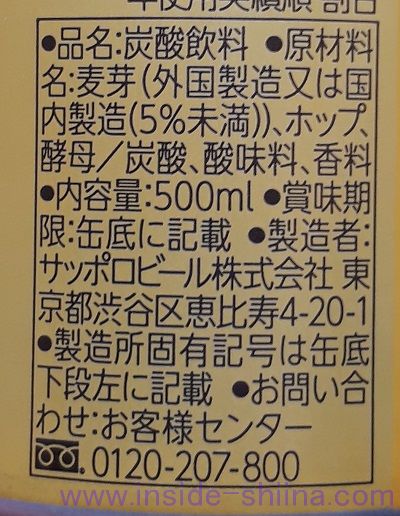 年使用実績順 割合
●品名:炭酸飲料 ●原材料
名:麦芽(外国製造又は国
内製造(5%未満))、ホップ、
酵母/炭酸、酸味料、香料
●内容量:500ml ●賞味期
限:缶底に記載 ●製造者:
サッポロビール株式会社 東
京都渋谷区恵比寿4-20-1
●製造所固有記号は缶底
下段左に記載 ●お問い合
わせ:お客様センター
0120-207-800
www.inside-shiina.com